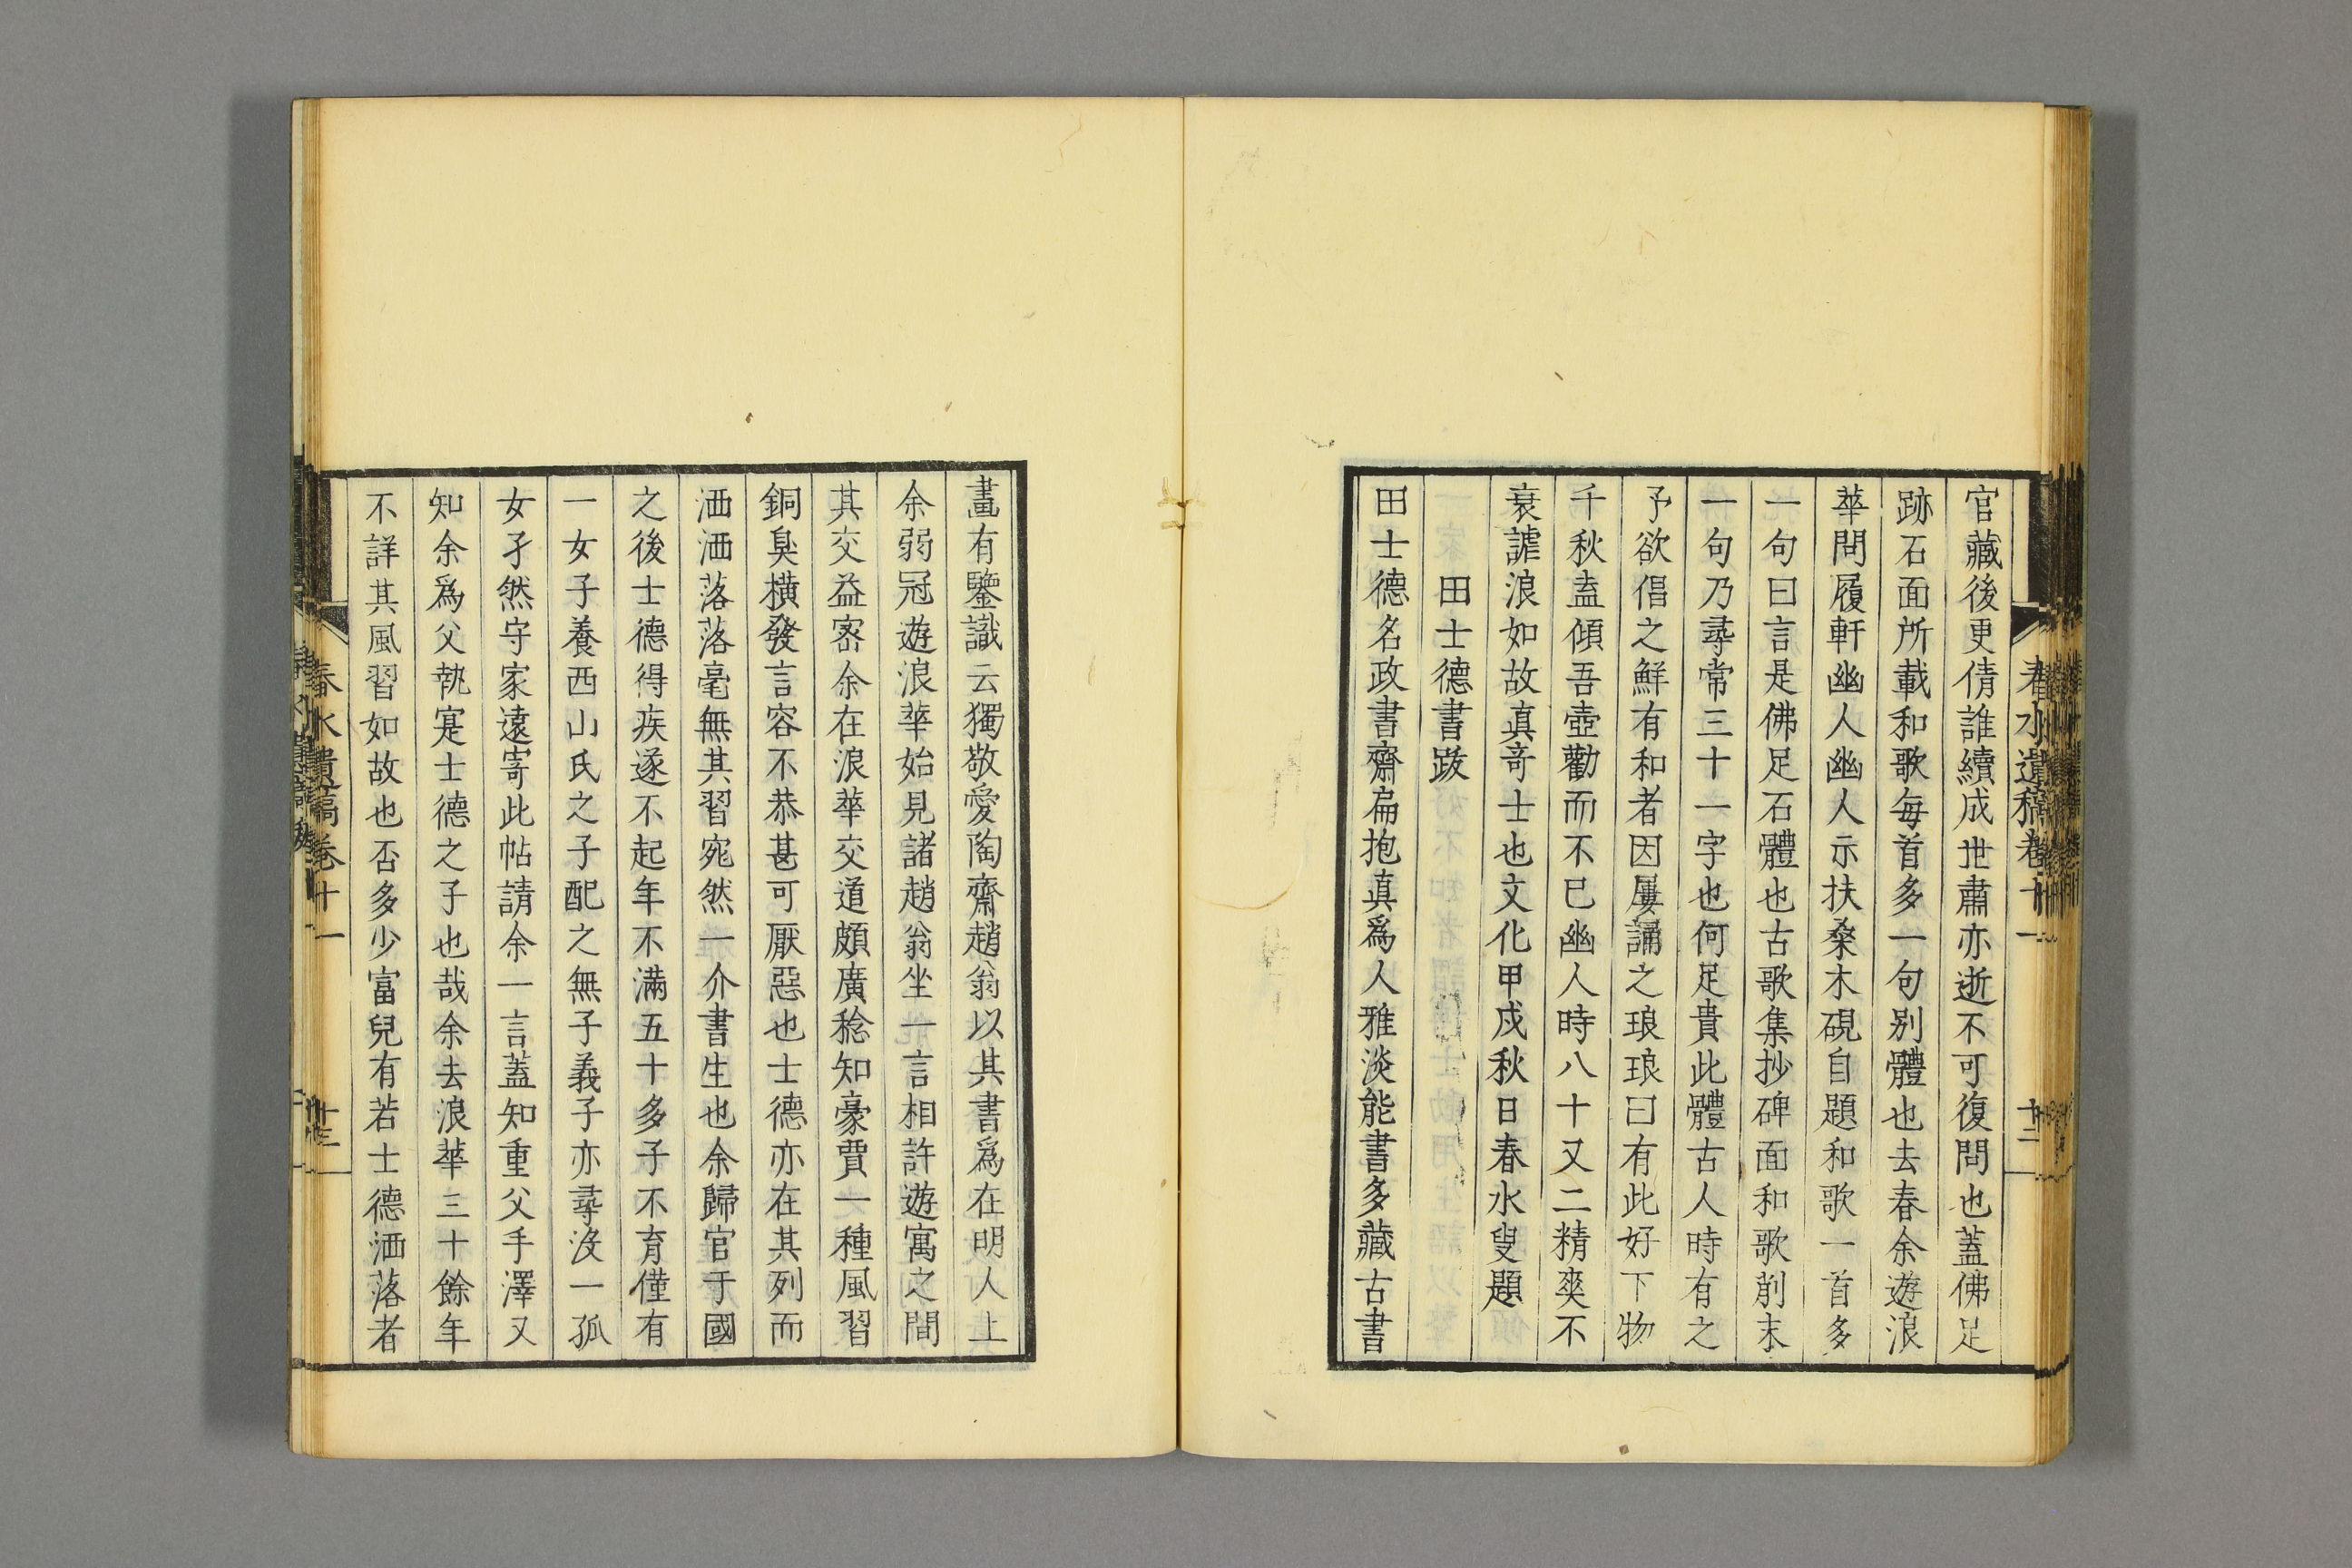 春水遺稿卷十一
十二
官藏後更倩誰續成世肅亦逝不可復問也蓋佛足
跡石面所載和歌每首多一句别體也去春余遊浪
華問履軒幽人幽人示扶桑木硯自題和歌一首多
一句曰言是佛足石體也古歌集抄碑面和歌削末
一句乃尋常三十一字也何足貴此體古人時有之
予欲倡之鮮有和者因屢誦之琅琅曰有此好下物
千秋盍傾吾壺勸而不已幽人時八十又二精爽不
衰謔浪如故真竒士也文化甲戌秋日春水叟題
田士德書跋
田士德名政書齋扁抱真爲人雅淡能書多藏古書
畫有鑒識云獨敬愛陶齋趙翁以其書爲在明人上
余弱冠遊浪華始見諸趙翁坐一言相許遊寓之間
其交益密余在浪華交道頗廣稔知豪賈一種風習
銅臭橫發言容不恭甚可厭惡也士德亦在其列而
洒洒落落毫無其習宛然一介書生也余歸官于國
之後士德得疾遂不起年不滿五十多子不育僅有
一女子養西山氏之子配之無子義子亦尋沒一孤
女孑然守家遠寄此帖請余一言蓋知重父手澤又
知余爲父執寔士德之子也哉余去浪華三十餘年
不詳其風習如故也否多少富兒有若士德洒落者
春水遺稿卷十一
十三